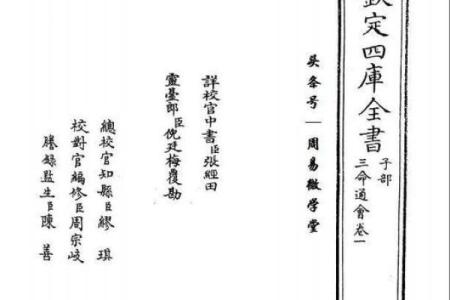 欽定四庫全書
子部
三命通會卷一
头条号｜周易微学堂
詳校官中書臣張經田
靈臺郎臣倪廷梅覆勘
總校官知縣臣繆琪
校對官編修臣周宗岐
謄錄監生臣陳善